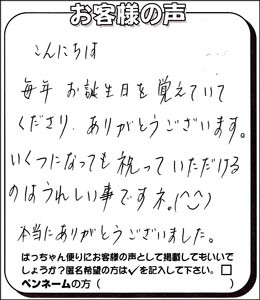 お客様の声
こんにちは
毎年 お誕生日を覚えていて
くださり、ありがとうございます。
いくつになっても祝っていただける
のはうれしい事ですネ。(^‿^)
本当にありがとうございました。
ばっちゃん便りにお客様の声として掲載してもいいで
しょうか？匿名希望の方は✓を記入して下さい。□
ペンネームの方（　　　　　　　　　）